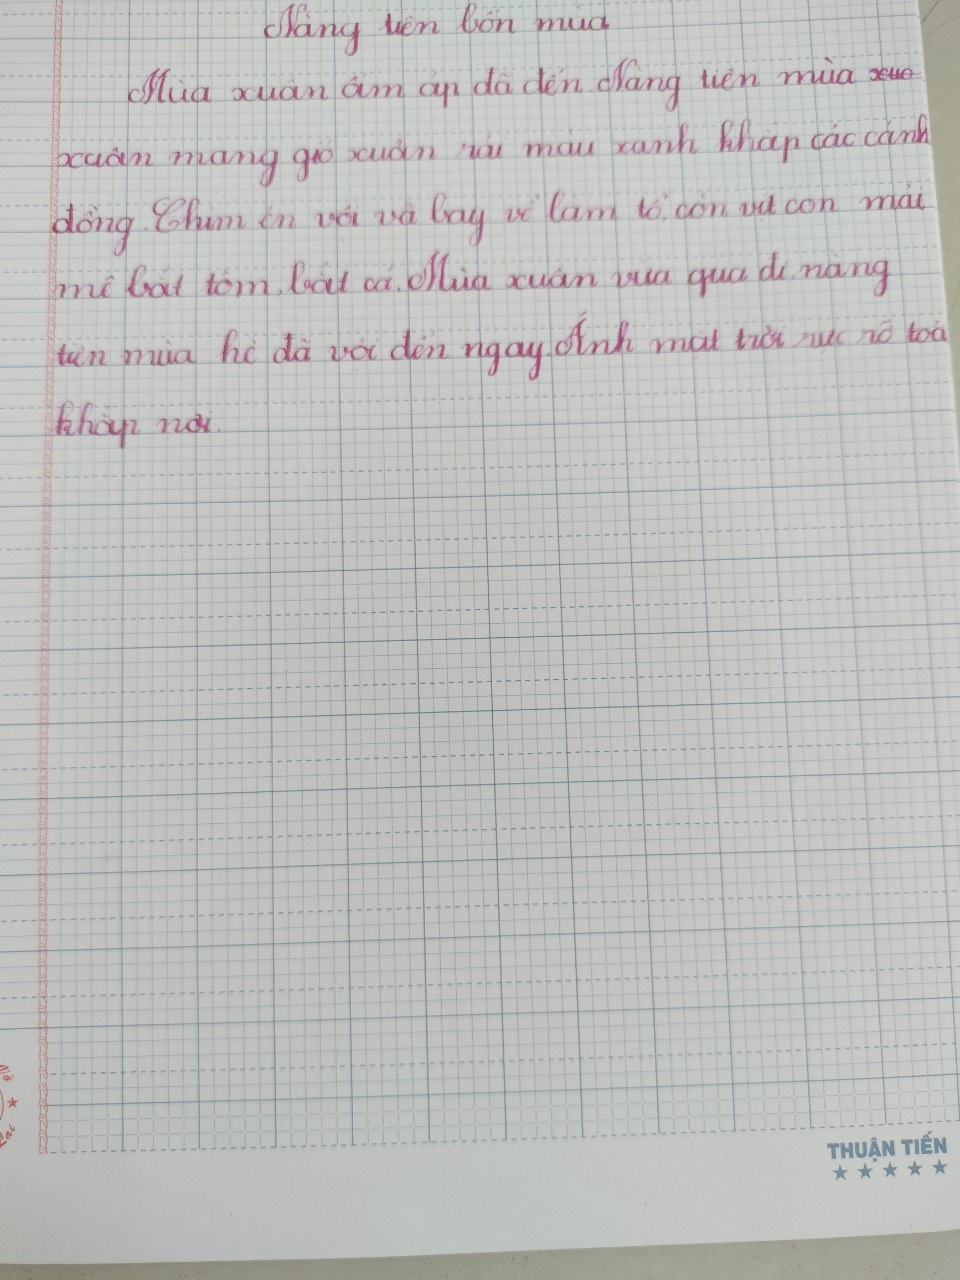 Nàng tiên bốn mùa
Mùa xuân ấm áp đã đến. Nàng tiên mùa
xuân mang gió xuân rải màu xanh khắp các cánh
đồng. Chim én vội vã bay về làm tổ, còn vịt con mải
mê bắt tôm, bắt cá. Mùa xuân vừa qua đi, nàng
tiên mùa hè đã vội đến ngay. Ánh mặt trời rực rỡ toả
khắp nơi.
THUẬN TIẾN